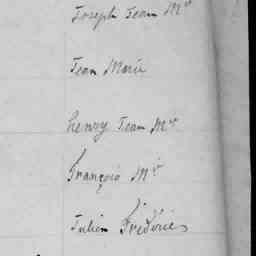 Joseph Jean Mie
Jean Marie
henry Jean Mie
François Mie
Julien Frédéric